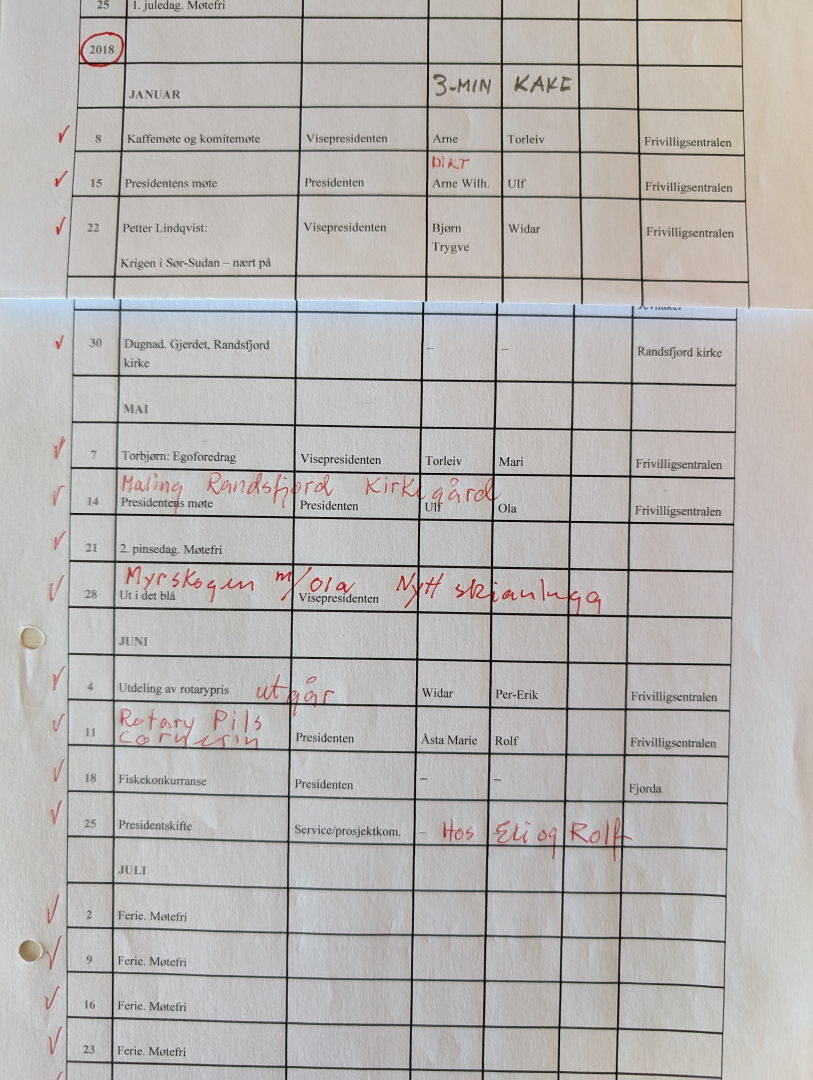 25 1. juledag. Møtefri
2018
JANUAR 3-MIN KAKE
8 Kaffemøte og komitemøte Visepresidenten Arne Torleiv Frivilligsentralen
DIKT
15 Presidentens møte Presidenten Arne Wilh. Ulf Frivilligsentralen
22 Petter Lindqvist: Visepresidenten Bjørn Widar Frivilligsentralen
Trygve
Krigen i Sør-Sudan – nært på
30 Dugnad. Gjerdet, Randsfjord – – Randsfjord kirke
kirke
MAI
7 Torbjørn: Egoforedrag Visepresidenten Torleiv Mari Frivilligsentralen
Maling Randsfjord Kirkegård
14 Presidentens møte Presidenten Ulf Ola Frivilligsentralen
21 2. pinsedag. Møtefri
Myrskogen m/Ola Nytt
28 Ut i det blå Visepresidenten
JUNI
4 Utdeling av rotarypris utgår Widar Per-Erik Frivilligsentralen
Rotary Pils
11 Presidenten Åsta Marie Rolf Frivilligsentralen
18 Fiskekonkurranse Presidenten – – Fjorda
25 Presidentskifte Service/prosjektkom. – Hos Eli og Rolf
JULI
2 Ferie. Møtefri
9 Ferie. Møtefri
16 Ferie. Møtefri
23 Ferie. Møtefri